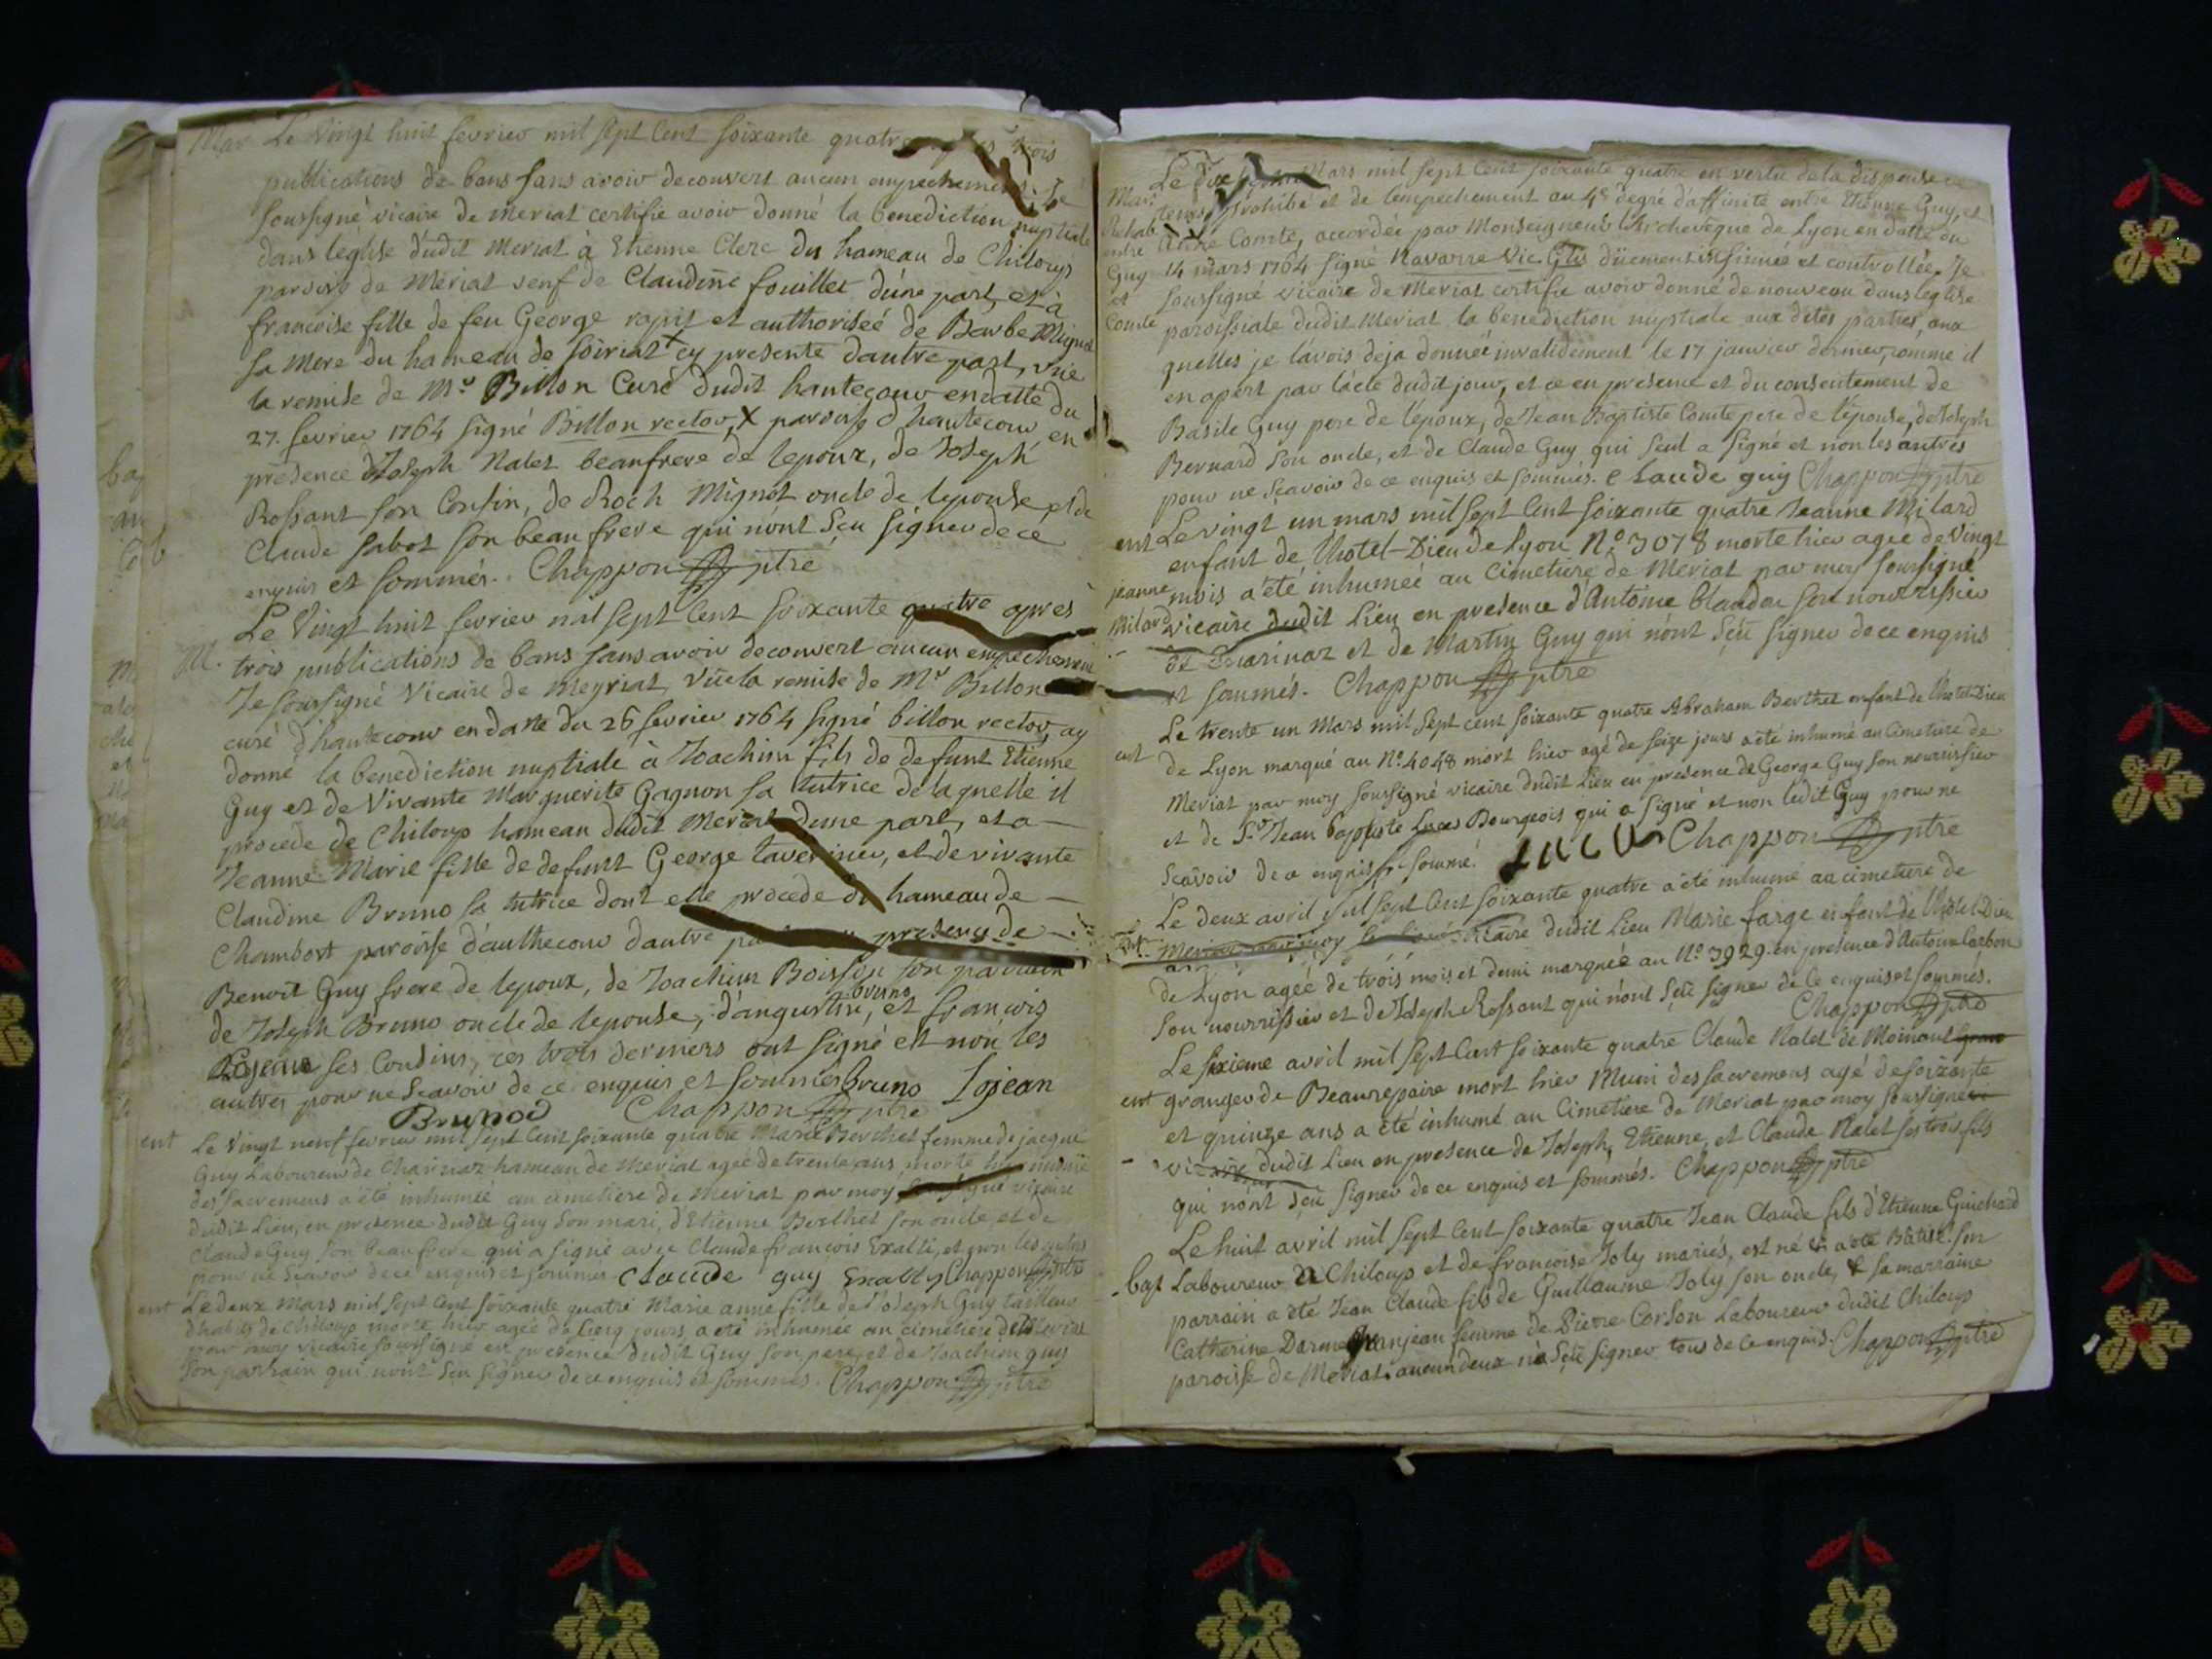 Mar Le Vingt huit fevrier mil sept Cent soixante quatre trois
publications de bans sans avoir decouvert aucun empechement. Je
soussigné vicaire de meriat certifie avoir donné la benediction nuptiale
dans leglise dudit meriat à Etienne Clerc du hameau de Chiloup
paroisse de Meriat veuf de Claudine fouillet d'une part, et à
francoise fille de feu George rapit et authoriseé de Barbe Mignot
sa mere du hameau de soiriat cy presente d'autre part, vüe
la remise de Mr Billon Curé dudit hautecour en datte du
27. fevrier 1764 signé Billon rector, X paroisse d'hautecour en
présence d'Joseph Nalet beaufrere de lepoux, de Joseph
Rossant son Cousin, de Roch Mignot oncle de lepouse et de
Claude sabot son beau frere qui n'ont sçu signer de ce
enquis et sommés. Chappon ptre
Le Vingt huit fevrier mil sept Cent soixante quatre après
M. trois publications de bans sans avoir decouvert aucun empechement
Je soussigné Vicaire de Meyriat, Vüe la remise de Mr Billon
curé d'hautecour en datte du 26 fevrier 1764 signé billon rector, ay
donné la benediction nuptiale à Joachim fils de defunt Etienne
Guy et de Vivante Marguerite Gagnon sa tutrice de laquelle il
procede de Chiloup hameau dudit Meriat d'une part, et a
Jeanne Marie fille de defunt George tavernier, et de vivante
Claudine Bruno sa tutrice dont elle procede du hameau de
Chambort paroisse d'authecour dautre presence de
Benoit Guy frere de lepoux, de Joachim Boisson son parrain
de Joseph Bruno oncle de lepouse, d'augustin bruno, et francois
Lojean ses Cousins, ces trois derniers ont signé et non les
autres pour ne scavoir de ce enquis et sommés Bruno Lojean
Brunod Chappon ptre
ent Le Vingt neuf fevrier mil sept Cent soixante quatre Marie Berthet femme de jacque
Guy Laboureur de Charinaz hameau de Meriat ageé de trente ans, morte hier munie
des sacremens a été inhumeé au cimetiere de Meriat par moy soussigné vicaire
dudit Lieu, en presence dudit Guy son mari, d'Etienne Berthet son oncle et de
Claude Guy son beaufrere qui a signé avec Claude francois Exalty, et non les autres
pour ne scavoir de ce enquis et sommés Claude guy Exalty Chappon ptre
ent Le deux Mars mil sept Cent soixante quatre Marie anne fille de Joseph Guy tailleur
d'habits de Chiloup morte hier agée de Cinq jours, a été inhumée au cimetiere de Meriat
par moy vicaire soussigné en presence dudit Guy son pere, et de Joachim guy
son parrain qui n'ont sçu signer de ce enquis et sommés. Chappon ptre
Le dix Mars mil sept Cent soixante quatre en vertu de la dispense
Mar. tems prohibé et de lempechement au 4e degré d'affinité entre Etienne Guy, et
Rehab. Comte, accordée par Monseigneur l'Archeveque de Lyon en datte du
entre
Guy 14 mars 1764 signé Navarre Vic. Gts düement insinuée et controllée. Je
et soussigné vicaire de Meriat certifie avoir donné de nouveau dans leglise
Comte paroissiale dudit Meriat la benediction nuptiale aux dites parties, aux
quelles je l'avois deja donneé invalidement le 17 janvier dernier, comme il
en apert par l'acte dudit jour, et ce en presence et du consentement de
Basile Guy pere de l'époux, de Jean Baptiste Comte pere de l'épouse, de Joseph
Bernard son oncle, et de Claude Guy qui seul a signé et non les autres
pour ne scavoir de ce enquis et sommés. Claude guy Chappon ptre
ent Le vingt un mars mil sept Cent soixante quatre Jeanne Milard
enfant de l'hotel-Dieu de Lyon No 3078 morte hier agée de Vingt
jeanne mois a été inhumeé au Cimetiere de Meriat par moy soussigné
Milard vicaire dudit Lieu en presence d'Antoine blandon son nourrissier
de Charinaz et de Martin Guy qui n'ont sçu signer de ce enquis
et sommés. Chappon ptre
Le trente un Mars mil sept cent soixante quatre Abraham Berthet enfant de l'hotel-Dieu
ent de Lyon marqué au No. 4048 mort hier agé de seize jours a été inhumé au Cimetiere de
Meriat par moy soussigné vicaire dudit Lieu en presence de George Guy son nourrissier
et de Sr Jean baptiste Luces Bourgeois qui a signé et non ledit Guy pour ne
scavoir de ce enquis et sommé. Chappon ptre
Le deux avril mil sept Cent soixante quatre a été inhumé au cimetiere de
ent. Meriat par moy vicaire dudit Lieu Marie farge enfant de l'hôtel-Dieu
de Lyon agée de trois mois et demi marqueé au No 3929. en presence d'Antoine Carbon
son nourrissier et de Joseph Rossant qui n'ont sçu signer de ce enquis et sommés.
Chappon ptre
Le sixieme avril mil sept Cent soixante quatre Claude Nalet de Moinant
ent granger de Beaurepaire mort hier Muni des sacremens agé de soixante
et quinze ans a été inhumé au Cimetiere de Meriat par moy soussigné
vicaire dudit Lieu en presence de Joseph, Etienne, et Claude Nalet ses trois fils
qui n'ont sçu signer de ce enquis et sommés. Chappon ptre
Le huit avril mil sept Cent soixante quatre Jean Claude fils d'Etienne Guichard
bapt Laboureur de Chiloup et de francoise Joly mariés, est né et a été Bâtisé. Son
parrain a été Jean Claude fils de Guillaume Joly son oncle, & sa marraine
Catherine Darme femme de Pierre Corson Laboureur dudit Chiloup
paroisse de Meriat. aucun deux n'a sçu signer tous de ce enquis. Chappon ptre